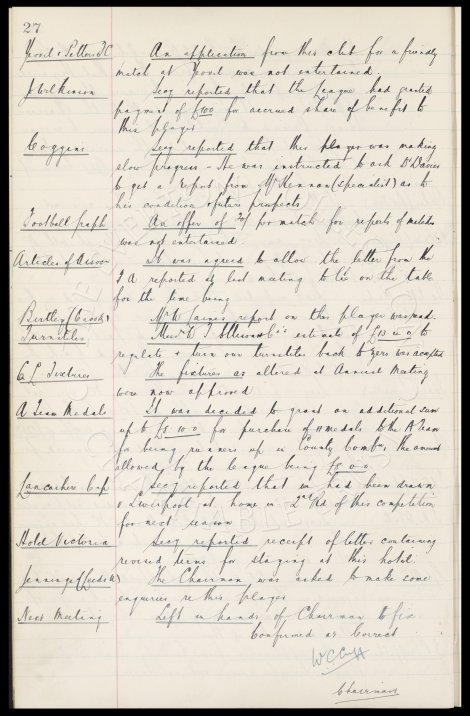 27
Yeovil & Petters F.C An application from this club for a friendly
match at Yeovil was not entertained.
J Wilkinson Secy reported that the League had granted
payment of £100 for accrued share of benefit to
this player
Coggins Secy reported that this player was making
slow progress - He was instructed to ask Dr Davies
to get a report from Mr Kennan (specialist) as to
his condition & future prospects
Football Graph An offer of per match for reports of matches
was not entertained
Articles of Assocn It was agreed to allow the letter from the
F A reported at last meeting to lie on the table
for the time being
Birtley (Crook) Mr W Sawyers report on this player was read.
Turnstiles Messrs W T Ellison & Co's estimate of £13-4-0 to
regulate & turn our turnstiles back to zero was accepted
C L Fixtures The fixtures as altered at Annual Meeting
were now approved
A Team Medals It was decided to grant an additional sum
up to for purchase of 11 medals to the A Team
for being runners up in County Combn, the amount
allowed by the league being £5-0-0
Lancashire Cup Secy reported that we had been drawn
v Liverpool at home in 2nd Rd of this competition
for next season
Hotel Victoria Secy reported receipt of letter containing
revised terms for staying at this hotel.
Jennings (Leeds U) The Chairman was asked to make some
enquiries re this player
Next Meeting Left in hands of Chairman to fix
Confirmed as Correct
W C Cuff
Chairman